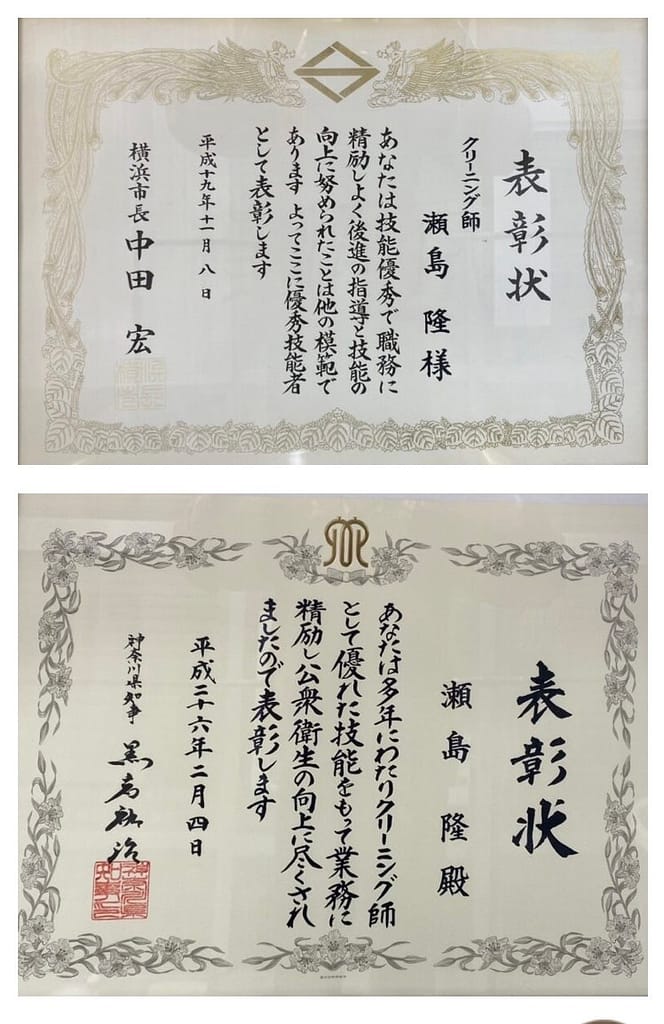 表彰状
クリーニング師
瀬島隆様
あなたは技能優秀で職務に
精励しよく後進の指導と技能の
向上に努められたことは他の模範で
あります よってここに優秀技能者
として表彰します
平成十九年十一月八日
横浜市長 中田 宏
表彰状
瀬島隆殿
あなたは多年にわたりクリーニング師
として優れた技能をもって業務に
精励し公衆衛生の向上に尽くされ
ましたので表彰します
平成二十六年二月四日
神奈川県知事 黒岩祐治